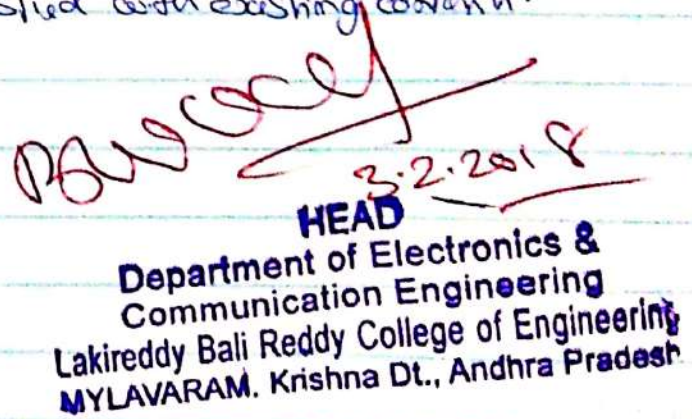 with existing
3.2.2018
HEAD
Department of Electronics &
Communication Engineering
Lakireddy Bali Reddy College of Engineering
MYLAVARAM. Krishna Dt., Andhra Pradesh